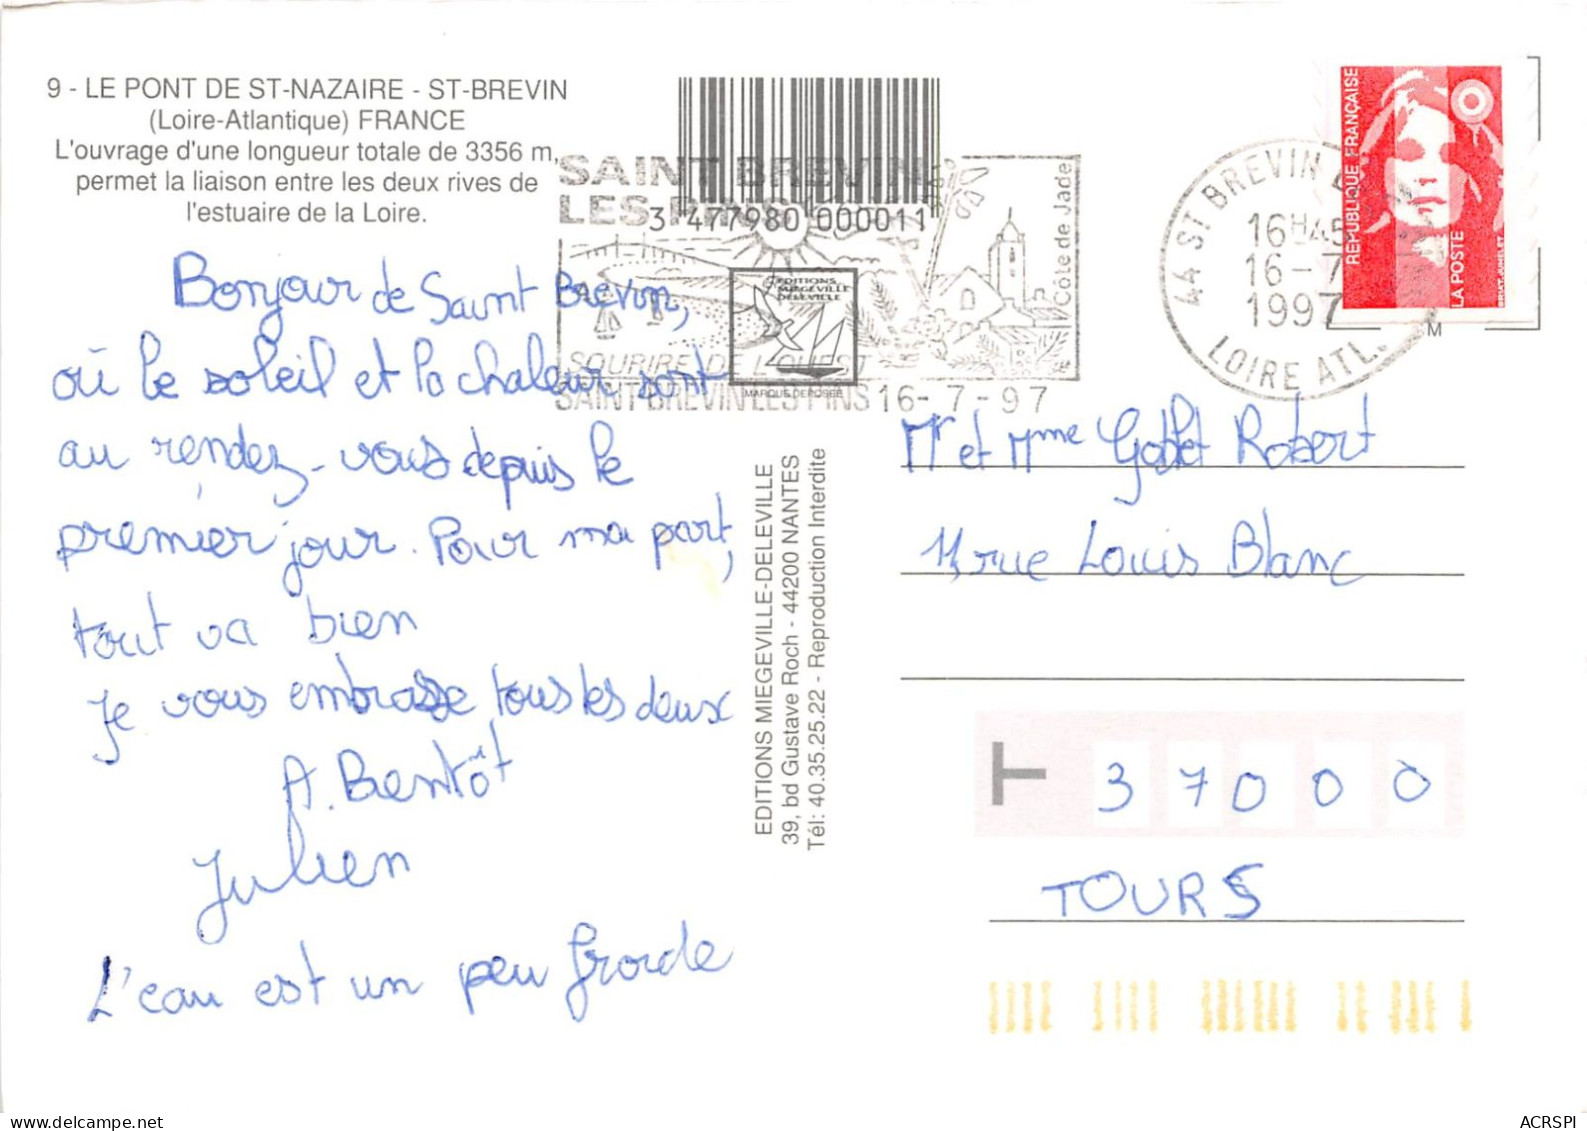 9 - LE PONT DE ST-NAZAIRE - ST-BREVIN
(Loire-Atlantique) FRANCE
L'ouvrage d'une longueur totale de 3356 m,
permet la liaison entre les deux rives de
l'estuaire de la Loire.
Bonjour de Saint Brévin,
où le soleil et la chaleur sont
au rendez-vous depuis le
premier jour. Pour ma part,
tout va bien
Je vous embrasse tous les deux
A. Bientôt
Julien
L'eau est un peu froide
SAINT BREVIN
LES PINS
3 477980 000011
Côte de Jade
EDITIONS
MIEGEVILLE
DELEVILLE
SOURIRE DE L'OUEST
MARQUE DEPOSEE
SAINT BREVIN LES PINS 16-7-97
EDITIONS MIEGEVILLE-DELEVILLE
39, bd Gustave Roch - 44200 NANTES
Tél: 40.35.25.22 - Reproduction Interdite
44 ST BREVIN
16H45
16-7
1997
LOIRE ATL.
REPUBLIQUE FRANÇAISE
LA POSTE
BRIAT-JUMELET
M
Mr et Mme Robert
11, rue Louis Blanc
T 37000
TOURS
ACRSPI